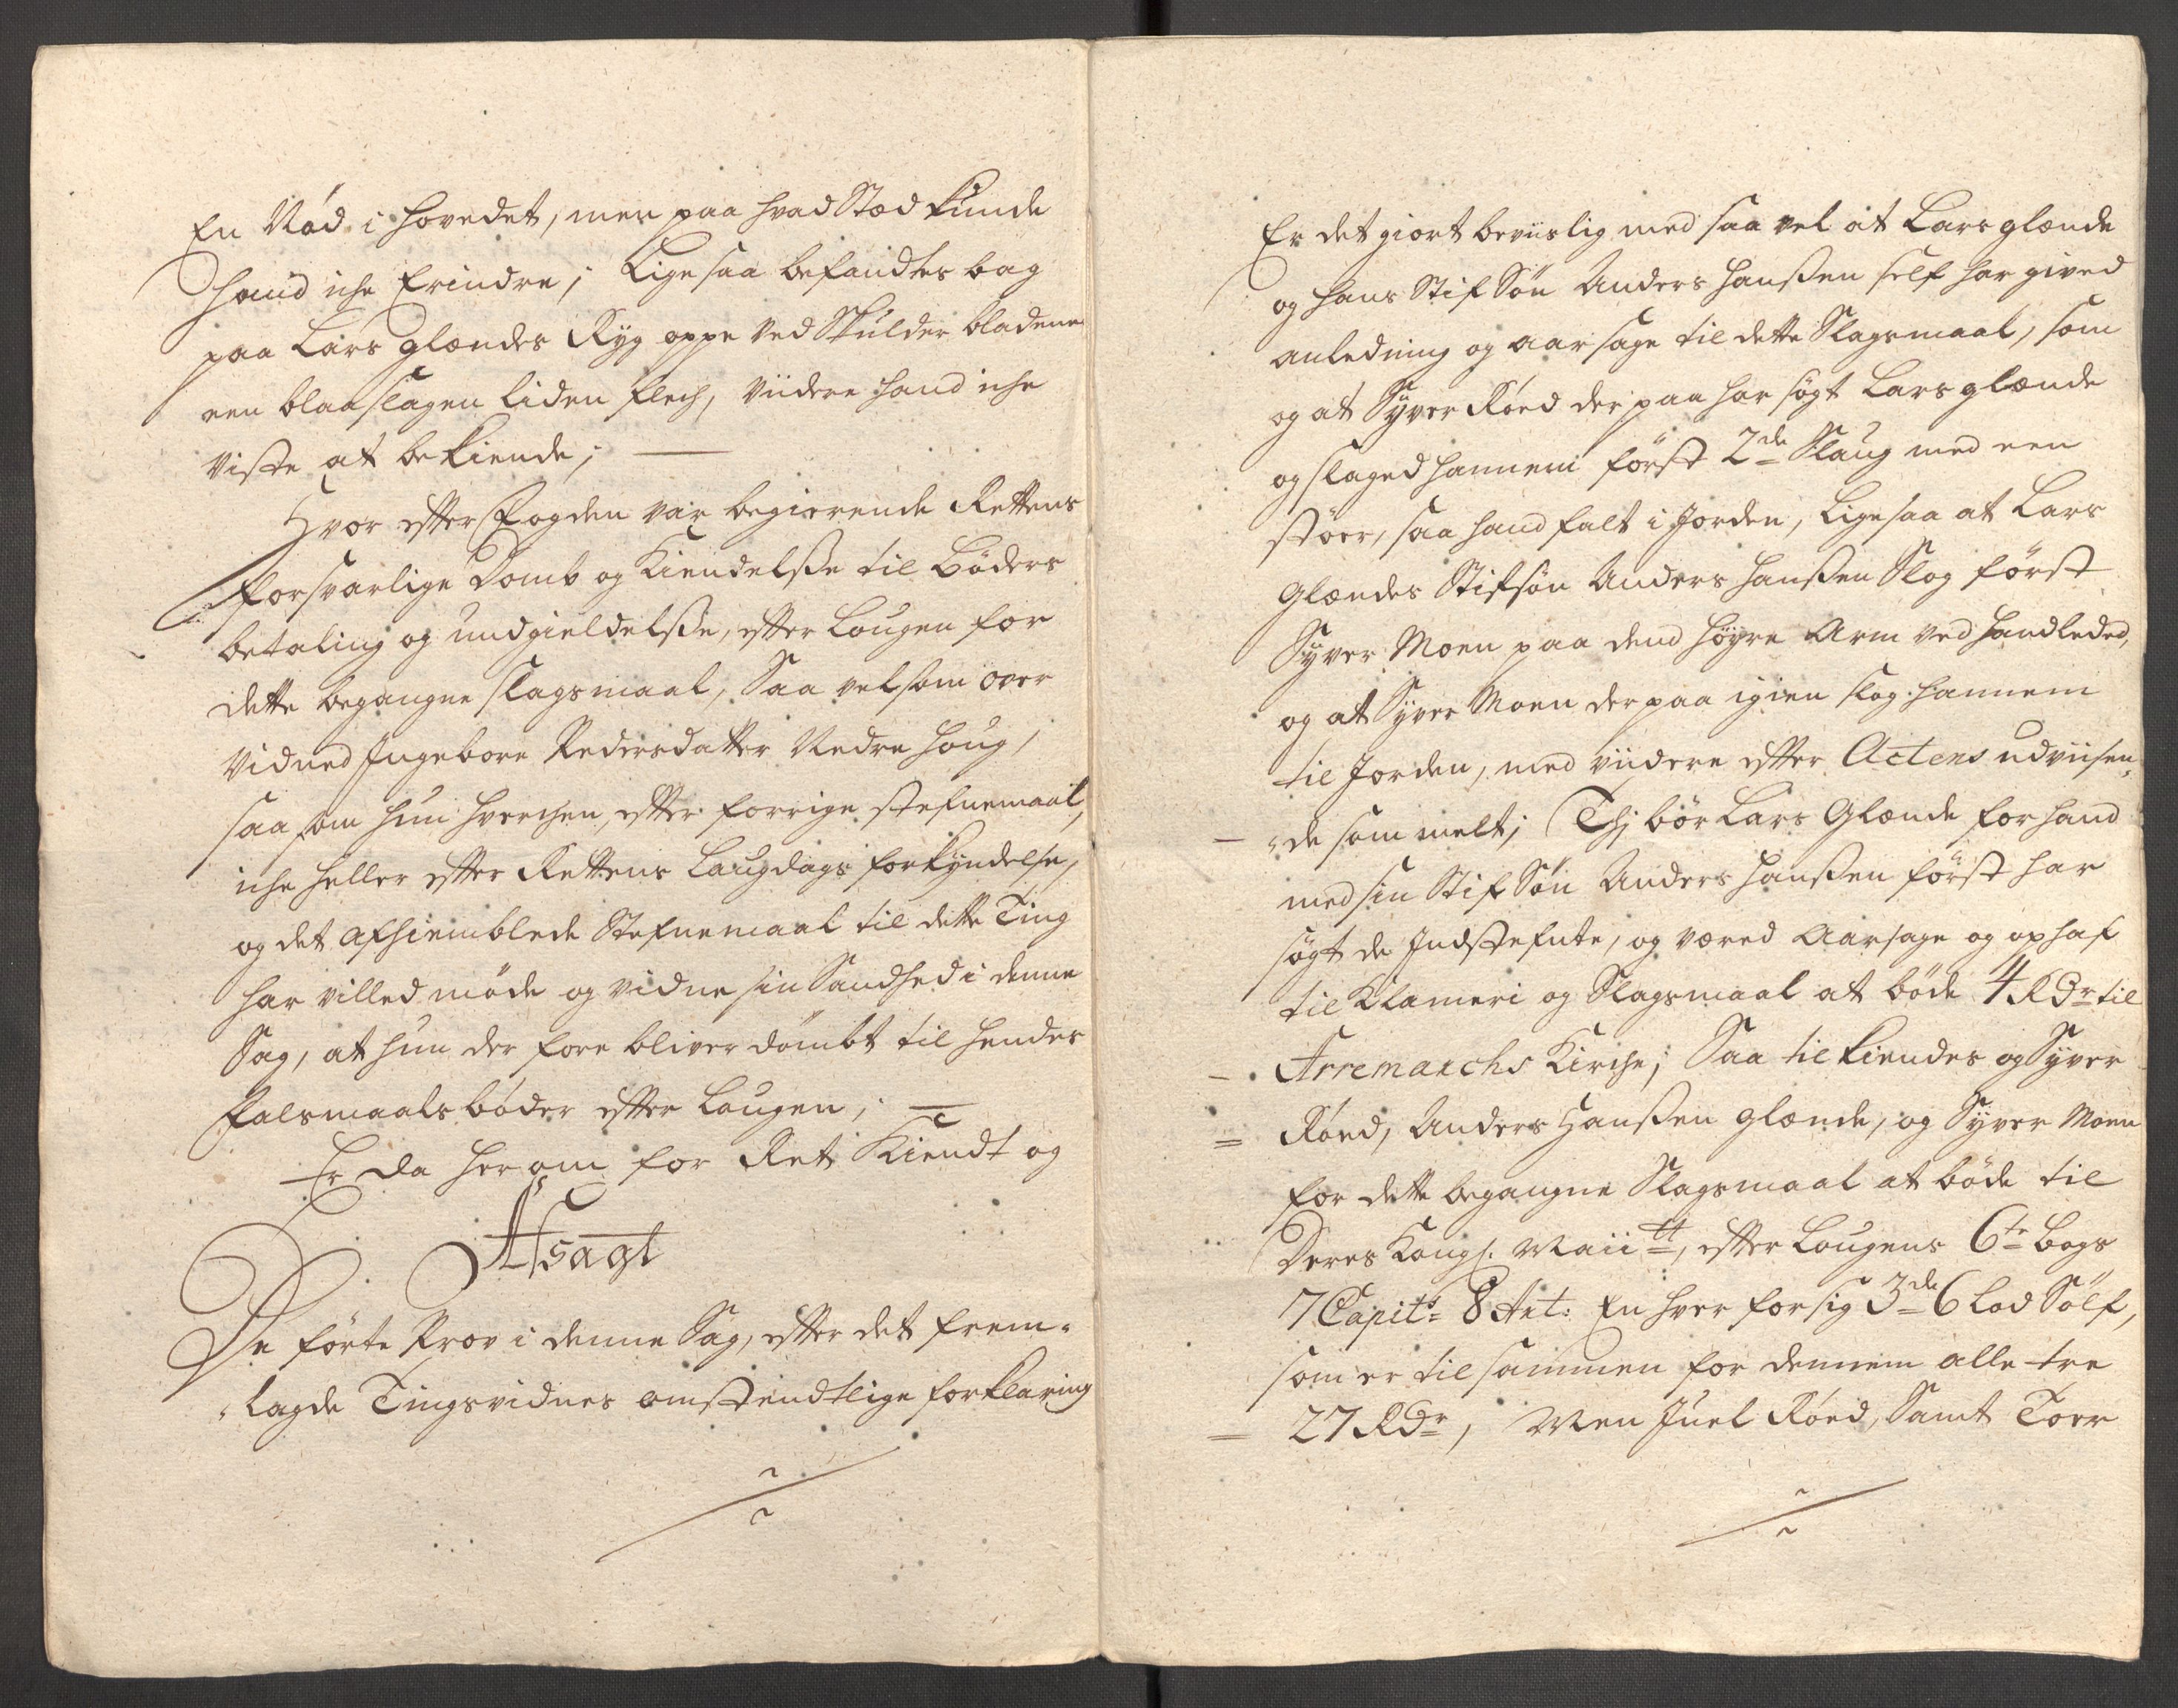 En Nød i hovedet, men paa hvad Stæd kunde
hand iche Erindre; Ligesaa befandtes bag
paa Lars glændes Ryg oppe ved Skulder bladene
een blaaslagen liden flech, viidere hand iche
viste at bekiende;
Hvor efter Fogden var begierende Rettens
forsvarlige Domb og Kiendelsse til bøders
betaling og undgieldelsse, efter Lougen for
dette begangne slagsmaal, Saa velsom over
vidned Ingebore Pedersdatter Nedre houg,
saasom hun hverchen, efter forrige stefnemaal,
iche heller efter Rettens Laugdags forkyndelse,
og det afhiemblede Stefnemaal til dette Ting
har villed møde og vidne sin Sandhed i denne
Sag, at hun der fore bliver dømbt til hendes
falsmaals bøder efter Lougen;
Er da her om for Ret Kiendt og
Afsagt
De førte Prov i denne Sag, efter det frem-
lagde Tingsvidnes omstendtlige forklaring
Er det giort beviislig med saa vel at Lars glænde
og hans Stif Søn Anders hanssen self har gived
anledning og aarsage til dette Slagsmaal, som
og at Syver Røed der paa har søgt Lars glænde
og slaged hannem først 2de Slaug med een
støer, saa hand falt i Jorden, Ligesaa at Lars
Glændes Stifsøn Anders hanssen Slog først
Syver Moen paa dend høyre Arm ved handleded,
og at Syver Moen der paa igien slog hannem
til Jorden, med viidere efter Actens udviisen-
de som melt; Thj bør Lars Glænde for hand
med sin Stif Søn Anders hanssen først har
søgt de Indstefnte, og væred Aarsage og ophaf
til Klameri og Slagsmaal at bøde 4 RDr til
Arremarchs Kirche; Saa tilkiendes og Syver
Røed, Anders Hanssen glænde, og Syver Moen
for dette begangne Slagsmaal at bøde til
Deres Kongl. Maiitt, efter Lougens 6te bogs
7 Capits 8 Art: En hver for sig 3de 6 Lod Sølf,
som er tilsammen for dennem alle tre
27 RDr, Men Juel Røed, Samt Torr